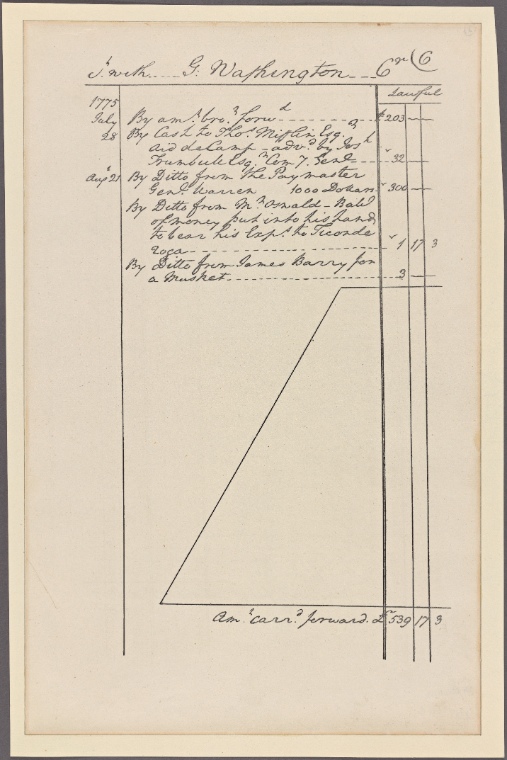 ct with G. Washington Cr (6
Lawful
1775
July By amt bro.t forwd 203
28 By Cash to Thos. Mifflin Esq.
Aid de Camp – advd by Josh
Trumbull Esq. Com y Genl 32
Augt 21 By Ditto from The Paymaster
Genl Warren 1000 Dollars 300
By Ditto from Mr Donald – Bale
of money put into his hands
to bear his Exps to Ticonde
roga 1 17 3
By Ditto from James Barry for
a Musket 3
Amt carrd forward. £ 539 17 3